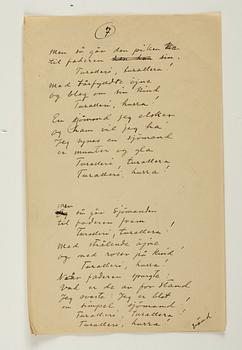 7
Men så går den piken
til faderen sin,
Turalleri, turallera!
Med tårfyllda ögna
og bleg om sin kind
Turalleri, hurra!
En sjömand jeg elsker
og ham vil jeg ha
Jeg synes en sjömand
er munter og gla
Turalleri, turallera,
Turalleri, hurra!
men
så går sjömanden
til faderen fram
Turalleri, turallera!
Med strålende öjne
og med roser på kind
Turalleri, hurra!
Når faderen spurgte
vad er de av for stand
Jeg svarte: Jeg er blot
en simpel sjömand!
Turalleri, Turallera!
Turalleri, hurra!